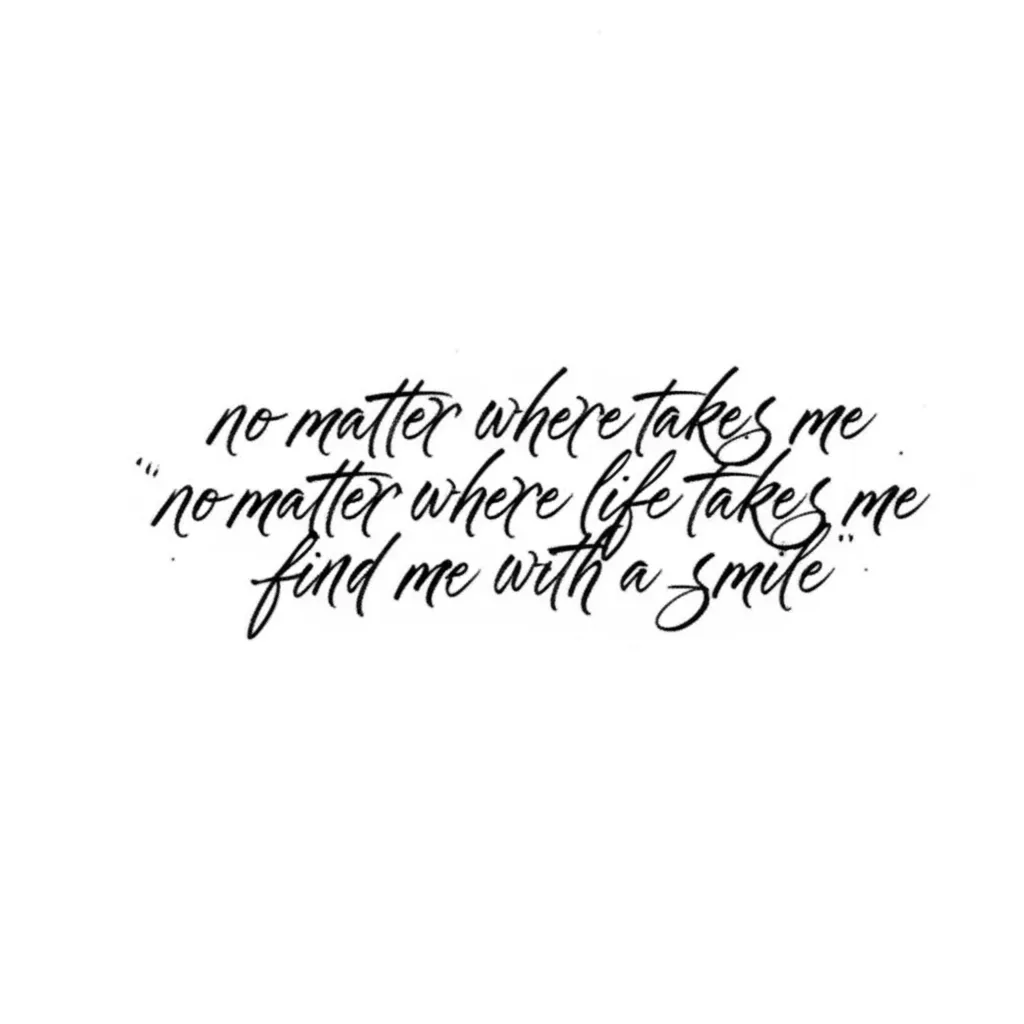 no matter where takes me
"no matter where life takes me
find me with a smile"